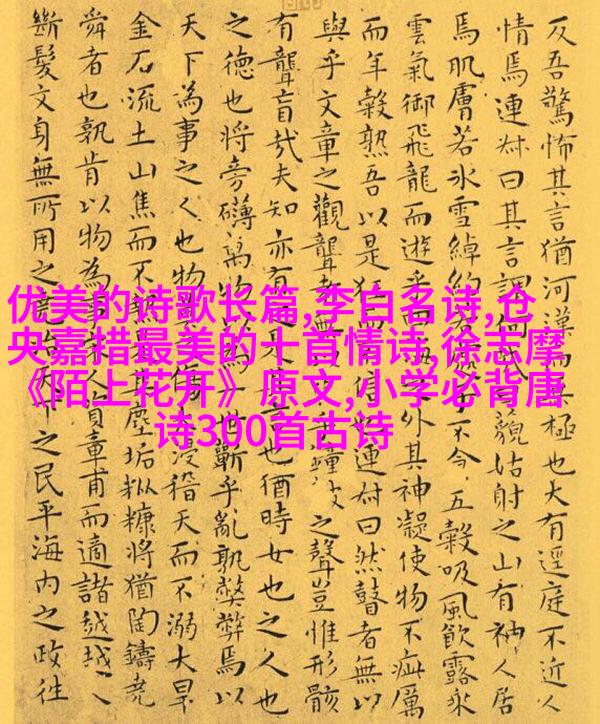 优美的诗歌长篇,李白名诗,仓
央嘉措最美的十首情诗,徐志摩
《陌上花开》原文,小学必背唐
诗300首古诗
反吾驚怖其言猶河漢而無極也大有逕庭不近人
情焉連叔曰其言謂何哉藐姑射之山有神人居
焉肌膚若冰雪綽約若不食五穀吸風飲露乘
雲氣御飛龍而遊乎四海之外其神凝使物不疵厲
而年穀熟吾以是狂而連叔曰然瞽者無以
與乎文章之觀聾者無以乎鐘鼓之聲豈惟形骸
有聾盲哉夫知亦有是其言也猶時女也之人也
之德也將旁礴萬物以世蘄乎亂孰弊弊焉以
天下為事之人也物莫之傷大浸稽天而不溺大旱
金石流土山焦而不熱是其塵垢粃糠將猶陶鑄堯
舜者也孰肯以物為事宋人資章甫而適諸越越人
斷髮文身無所用之堯治天下之民平海内之政往